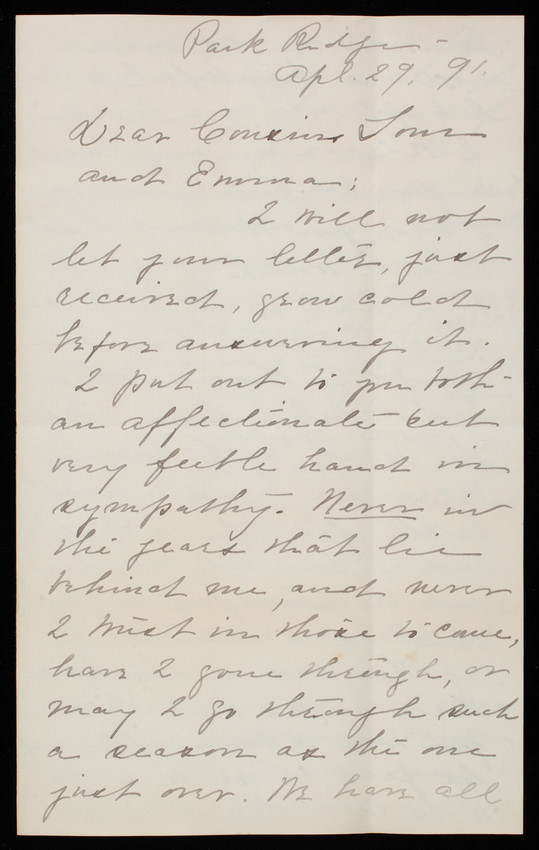 Park Ridge -
Apl. 29, 91.
Dear Cousins Tom
and Emma;
I will not
let your letter, just
received, grow cold
before answering it.
I put out to you both
an affectionate but
very feeble hand in
sympathy. Never in
the years that lie
behind me, and never
I trust in those to come,
have I gone through, or
may I go through such
a season as the one
just over. We have all